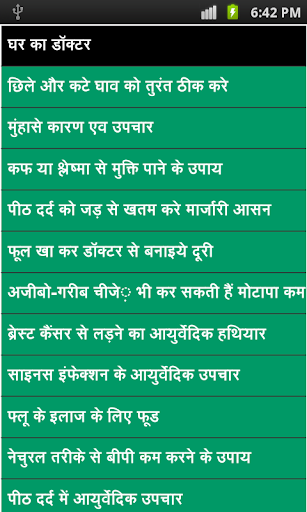 6:42 PM
घर का डॉक्टर
छिले और कटे घाव को तुरंत ठीक करे
मुंहासे कारण एव उपचार
कफ या श्लेष्मा से मुक्ति पाने के उपाय
पीठ दर्द को जड़ से खतम करे मार्जारी आसन
फूल खा कर डॉक्टर से बनाइये दूरी
अजीबो-गरीब चीजे़ भी कर सकती हैं मोटापा कम
ब्रेस्ट कैंसर से लड़ने का आयुर्वेदिक हथियार
साइनस इंफेक्शन के आयुर्वेदिक उपचार
फ्लू के इलाज के लिए फूड
नेचुरल तरीके से बीपी कम करने के उपाय
पीठ दर्द में आयुर्वेदिक उपचार